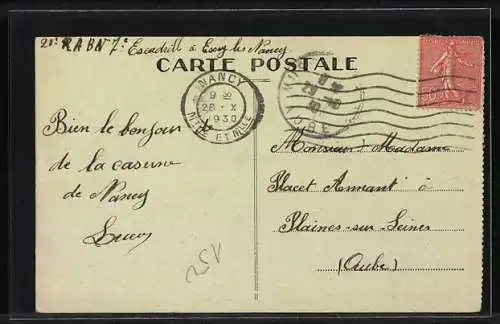 21e R.A.B.N 7e Escadrille à Essey les Nancy
CARTE POSTALE
NANCY
9 20
28 - X
1930
MTHE ET MLLE
50
Bien le bonjour
de la caserne
de Nancy
Lucien
Monsieur & Madame
Placet Armant à
Plaines-sur-Seines
(Aube)
25V